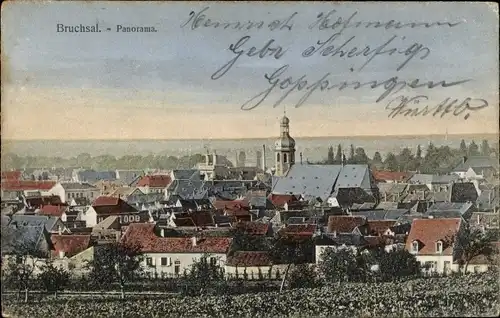 Bruchsal. - Panorama.
Heinrich Hofmann
Gebr Scherfig
Goppingen
Württb